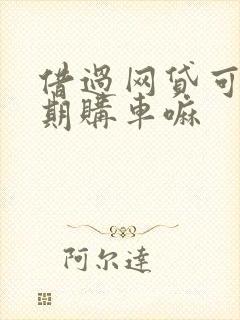 借過网贷可
期購車嘛
阿尔達